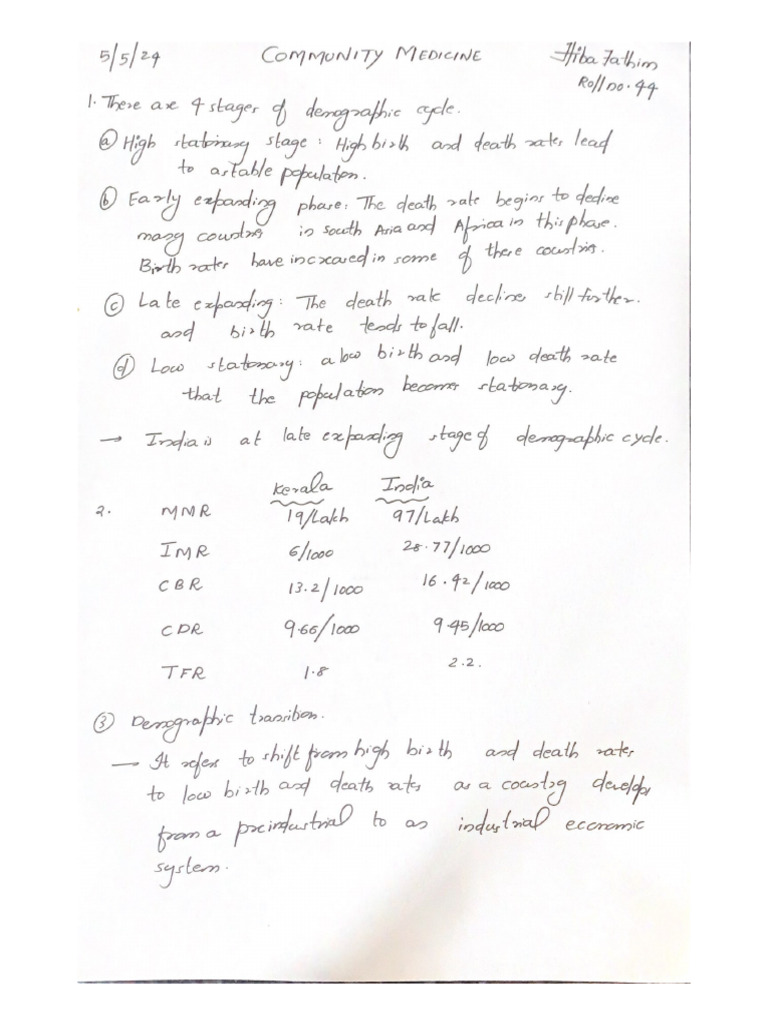 5/5/24 COMMUNITY MEDICINE Hiba Fathim
Roll no. 44
1. There are 4 stages of demographic cycle.
(a) High stationary stage : High birth and death rates lead
to a stable population.
(b) Early expanding phase: The death rate begins to decline
many countries in South Asia and Africa in this phase.
Birth rates have increased in some of there countries.
(c) Late expanding: The death rate declines still further.
and birth rate tends to fall.
(d) Low stationary: a low birth and low death rate
that the population becomes stationary.
→ India is at late expanding stage of demographic cycle.
Kerala India
2. MMR 19/Lakh 97/Lakh
IMR 6/1000 28.77/1000
CBR 13.2/1000 16.42/1000
CDR 9.66/1000 9.45/1000
TFR 1.8 2.2.
(3) Demographic transition.
→ It refers to shift from high birth and death rates
to low birth and death rates as a country develops
from a preindustrial to an industrial economic
system.